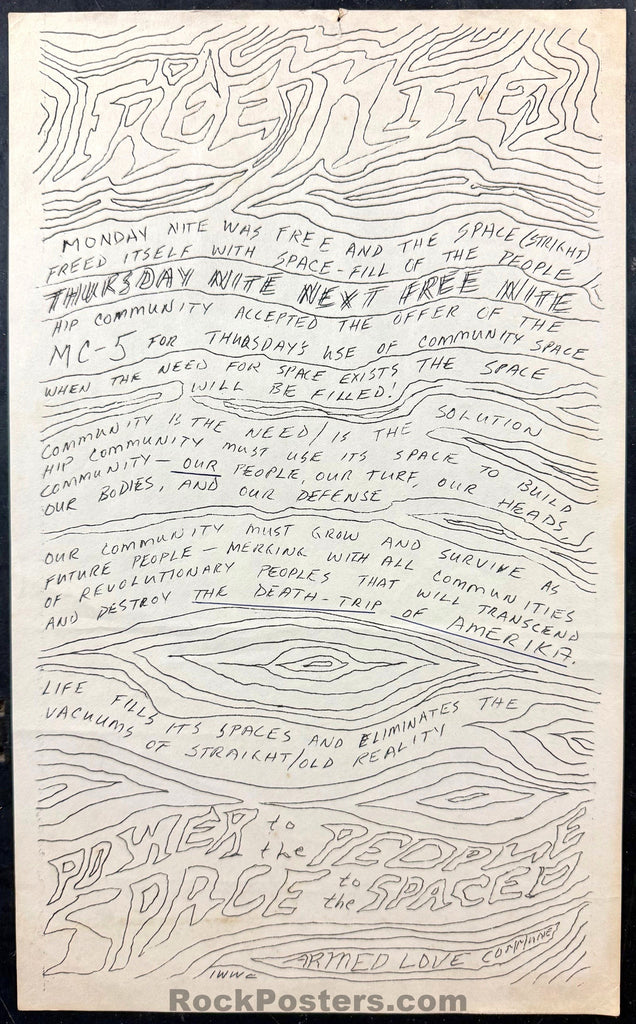 FREE NITE
MONDAY NITE WAS FREE AND THE SPACE (STRIGHT)
FREED ITSELF WITH SPACE-FILL OF THE PEOPLE
THURSDAY NITE NEXT FREE NITE
HIP COMMUNITY ACCEPTED THE OFFER OF THE
MC-5 FOR THURSDAY'S USE OF COMMUNITY SPACE
WHEN THE NEED FOR SPACE EXISTS THE SPACE
WILL BE FILLED!
COMMUNITY IS THE NEED/IS THE SOLUTION
HIP COMMUNITY MUST USE ITS SPACE TO BUILD
COMMUNITY — OUR PEOPLE, OUR TURF, OUR HEADS,
OUR BODIES, AND OUR DEFENSE
OUR COMMUNITY MUST GROW AND SURVIVE AS
FUTURE PEOPLE — MERGING WITH ALL COMMUNITIES
OF REVOLUTIONARY PEOPLES THAT WILL TRANSCEND
AND DESTROY THE DEATH-TRIP OF AMERIKA.
LIFE FILLS ITS SPACES AND ELIMINATES THE
VACUUMS OF STRAIGHT/OLD REALITY
POWER to the PEOPLE
SPACE to the SPACED
ARMED LOVE COMMUNES
IWWC
RockPosters.com